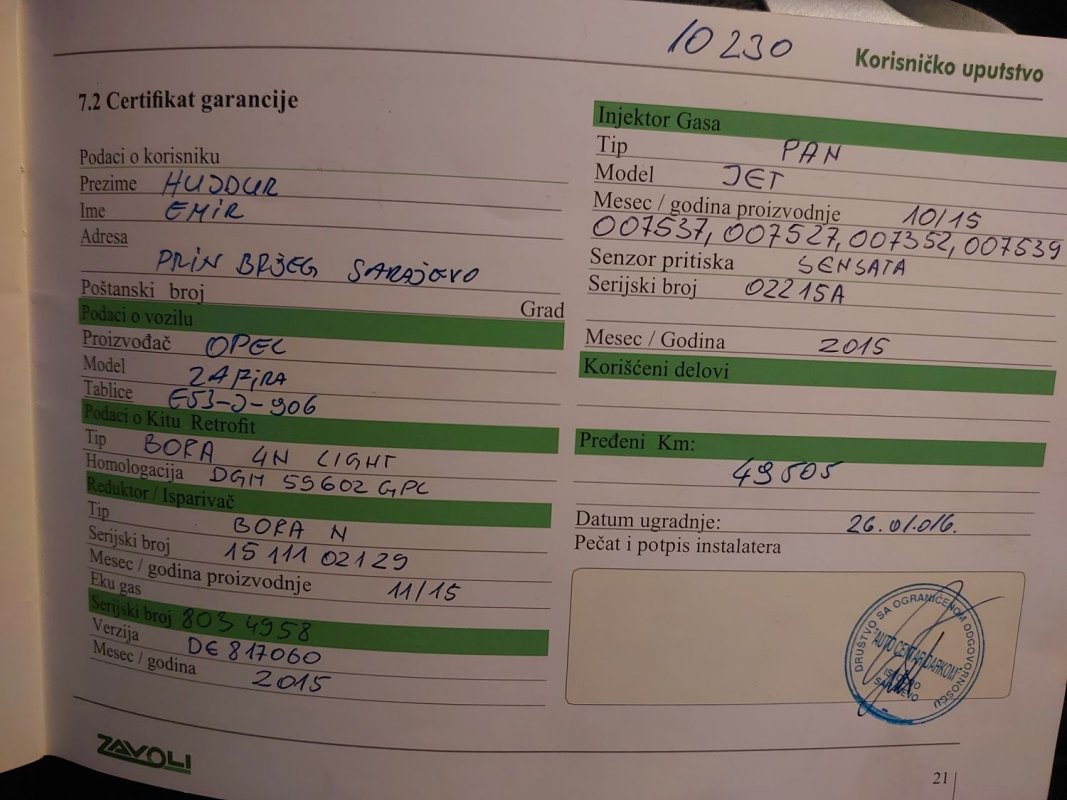 10 230
Korisničko uputstvo
7.2 Certifikat garancije
Podaci o korisniku
Prezime HUJDUR
Ime EMIR
Adresa
PRIN BRJEG SARAJEVO
Poštanski broj Grad
Podaci o vozilu
Proizvođač OPEL
Model ZAFIRA
Tablice E53-J-906
Podaci o Kitu Retrofit
Tip BORA 4N LIGHT
Homologacija DGM 59602 GPL
Reduktor / Isparivač
Tip BORA N
Serijski broj 15 111 02129
Mesec / godina proizvodnje 11/15
Eku gas
Serijski broj 803 4958
Verzija DE 817060
Mesec / godina 2015
ZAVOLI
Injektor Gasa
Tip PAN
Model JET
Mesec / godina proizvodnje 10/15
007537, 007527, 007352, 007539
Senzor pritiska SENSATA
Serijski broj 02215A
Mesec / Godina 2015
Korišćeni delovi
Pređeni Km:
49505
Datum ugradnje: 26.01.016.
Pečat i potpis instalatera
DRUŠTVO SA OGRANIČENOM ODGOVORNOSĆU
"AUTO CENTAR DARKOM"
ISTOČNO
SARAJEVO
21